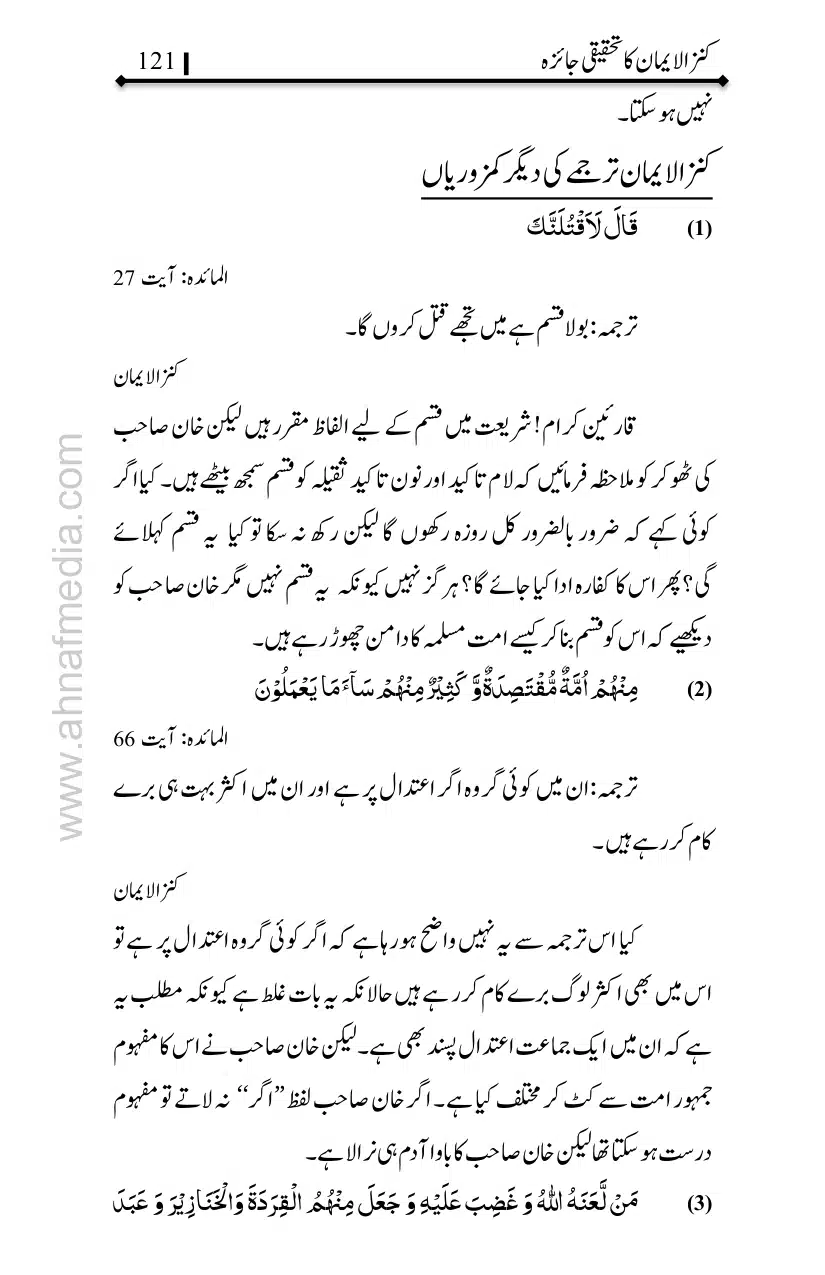 کنز الایمان کا تحقیقی جائزہ 121
نہیں ہو سکتا۔
کنز الایمان ترجمے کی دیگر کمزوریاں
(1) قَالَ لَاَقْتُلَنَّكَ
المائدہ: آیت 27
ترجمہ: بولا قسم ہے میں تجھے قتل کروں گا۔
کنز الایمان
قارئین کرام! شریعت میں قسم کے لیے الفاظ مقرر ہیں لیکن خان صاحب
کی ٹھوکر کو ملاحظہ فرمائیں کہ لام تاکید اور نون تاکید ثقیلہ کو قسم سمجھ بیٹھے ہیں۔ کیا اگر
کوئی کہے کہ ضرور بالضرور کل روزہ رکھوں گا لیکن رکھ نہ سکا تو کیا یہ قسم کہلائے
گی؟ پھر اس کا کفارہ ادا کیا جائے گا؟ ہر گز نہیں کیونکہ یہ قسم نہیں مگر خان صاحب کو
دیکھیے کہ اس کو قسم بنا کر کیسے امت مسلمہ کا دامن چھوڑ رہے ہیں۔
(2) مِنْهُمْ اُمَّةٌ مُّقْتَصِدَةٌ وَّ كَثِيْرٌ مِنْهُمْ سَآءَ مَا يَعْمَلُوْنَ
المائدہ: آیت 66
ترجمہ: ان میں کوئی گروہ اگر اعتدال پر ہے اور ان میں اکثر بہت ہی برے
کام کر رہے ہیں۔
کنز الایمان
کیا اس ترجمہ سے یہ نہیں واضح ہو رہا ہے کہ اگر کوئی گروہ اعتدال پر ہے تو
اس میں بھی اکثر لوگ برے کام کر رہے ہیں حالانکہ یہ بات غلط ہے کیونکہ مطلب یہ
ہے کہ ان میں ایک جماعت اعتدال پسند بھی ہے۔ لیکن خان صاحب نے اس کا مفہوم
جمہور امت سے کٹ کر مختلف کیا ہے۔ اگر خان صاحب لفظ ”اگر“ نہ لاتے تو مفہوم
درست ہو سکتا تھا لیکن خان صاحب کا باوا آدم ہی نرالا ہے۔
(3) مَنْ لَّعَنَهُ اللهُ وَ غَضِبَ عَلَيْهِ وَ جَعَلَ مِنْهُمُ الْقِرَدَةَ وَالْخَنَازِيْرَ وَ عَبَدَ
www.ahnafmedia.com